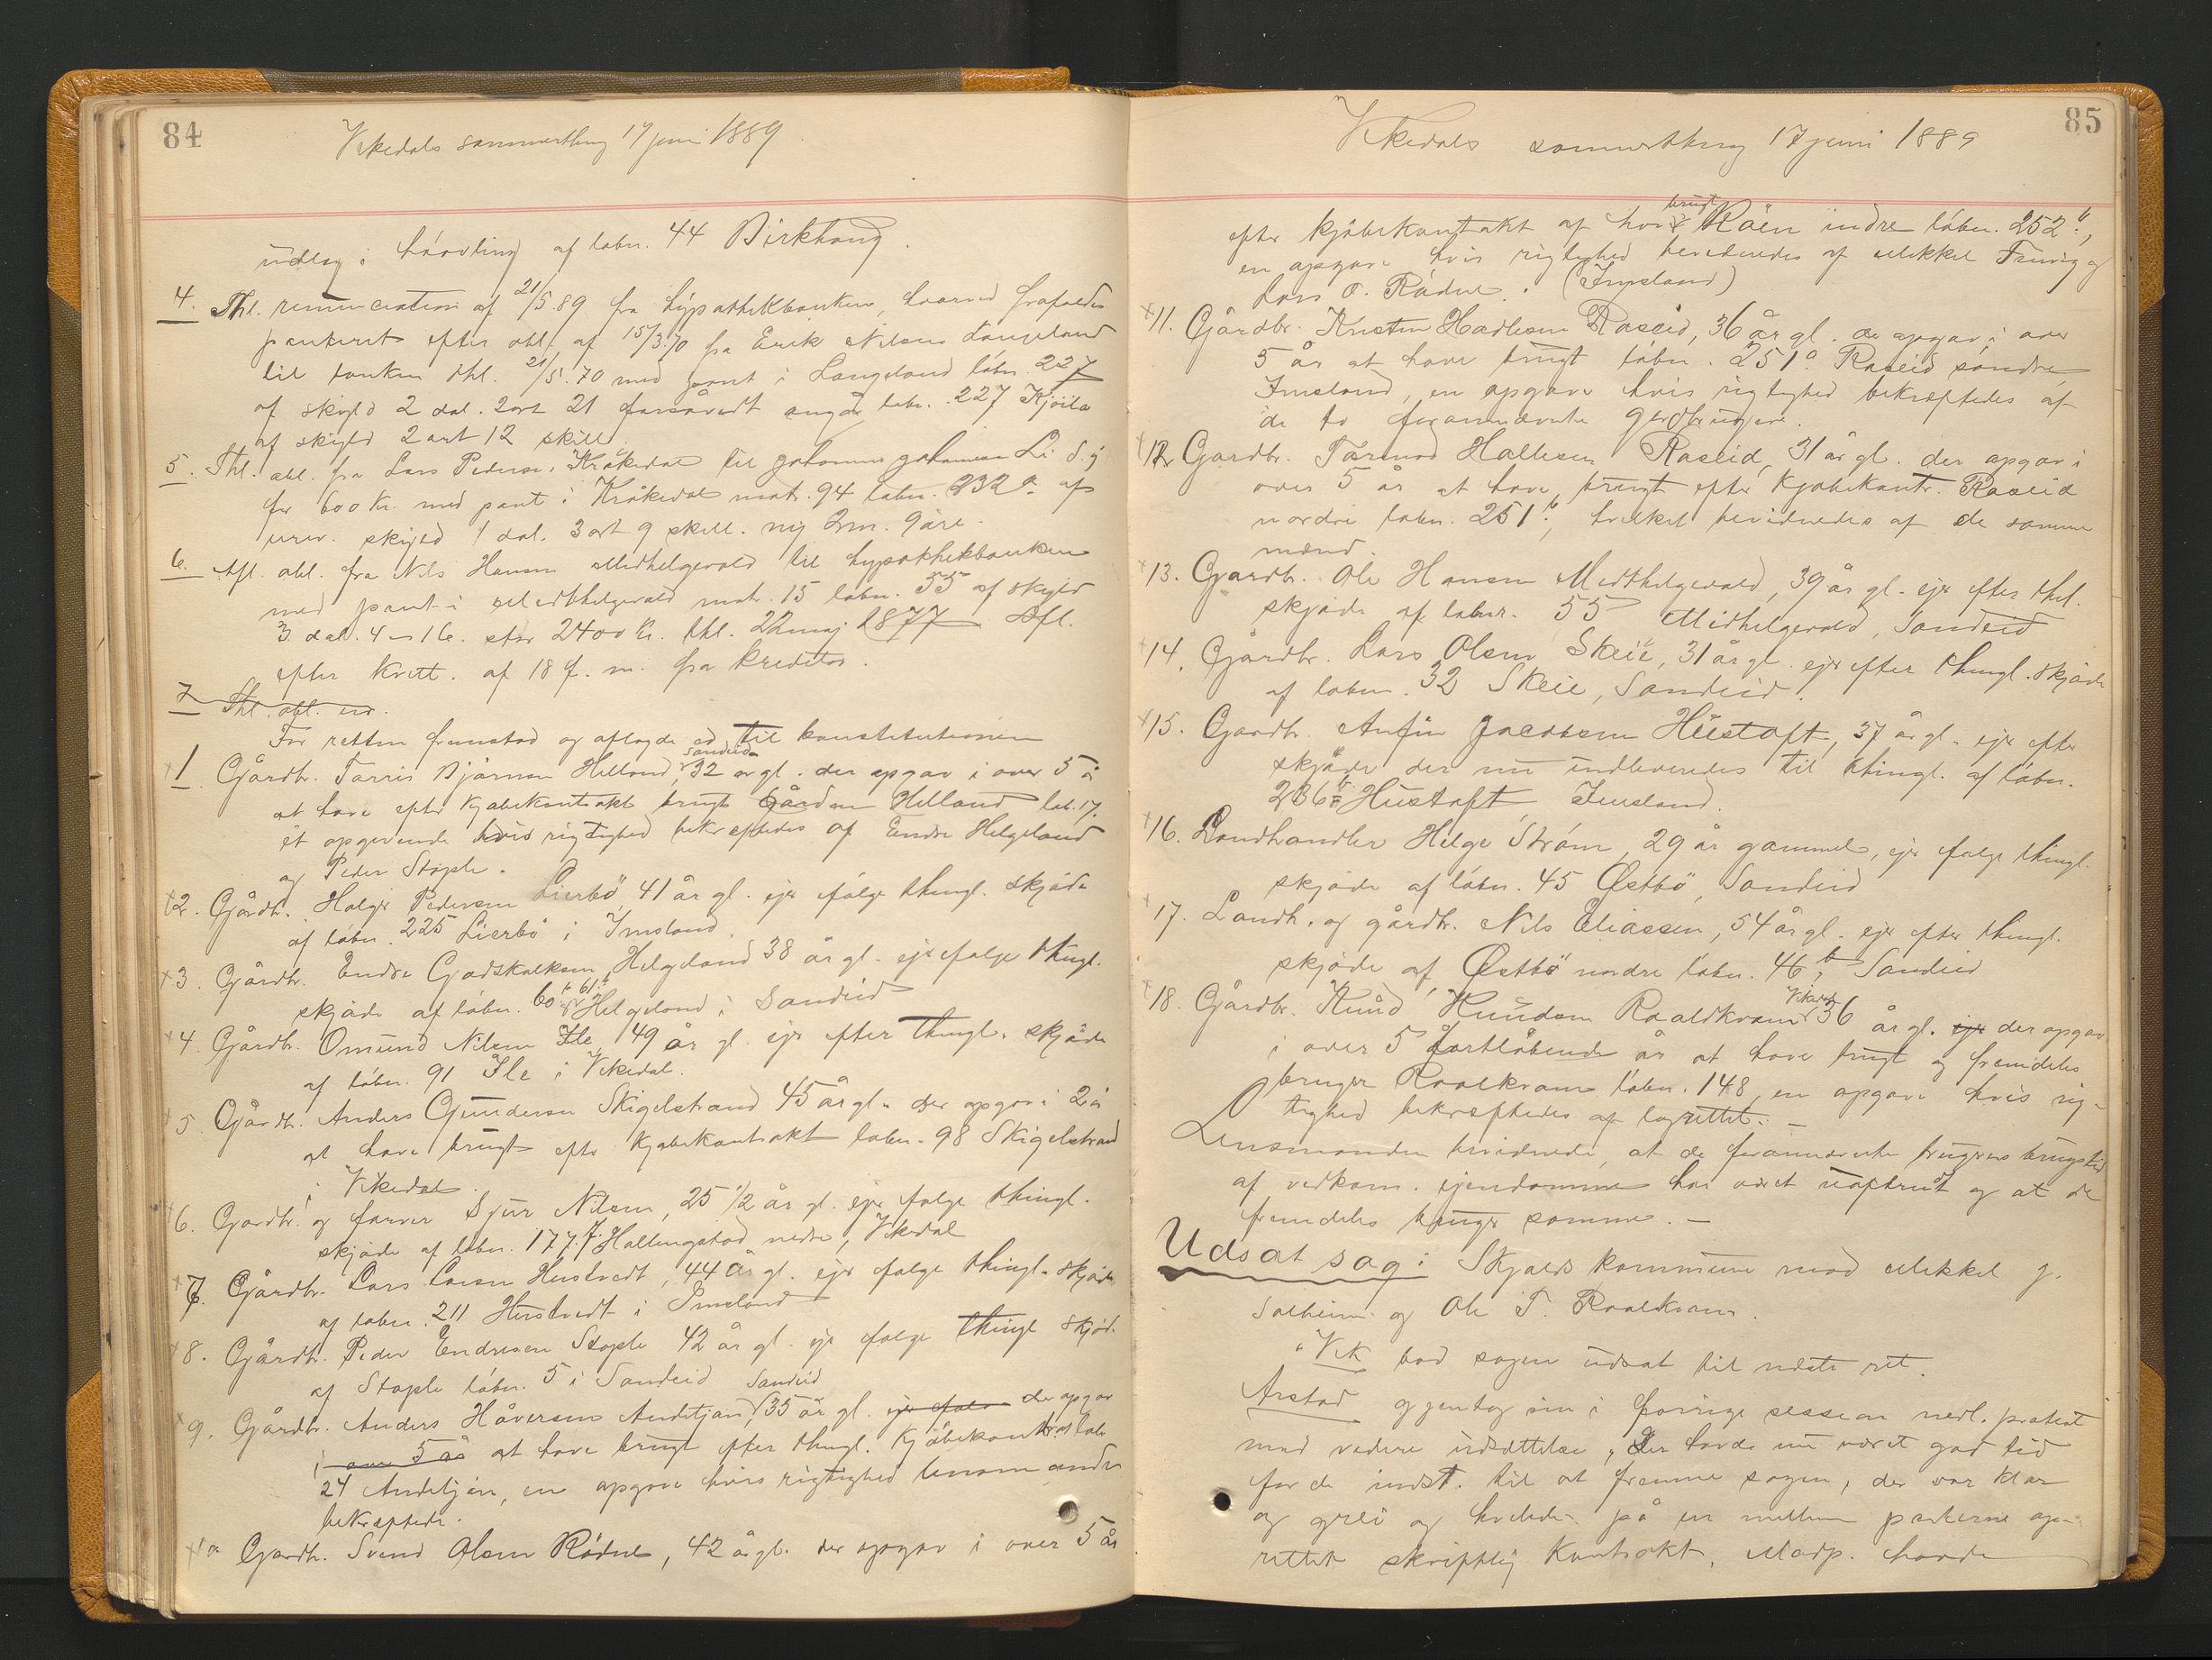 84
Vikedals sommerthing 17 juni 1889.
udlæg i håvling af løbn. 44 Birkhaug.
4. Thl. renunciation af 21/5.89 fra hypothekbanken, hvorved frafaldes
panteret efter obl. af 15/3.70 fra Erik Nilsen Langeland
til banken thl. 21/5.70 med pant i Langeland løbn. 227
af skyld 2 dal. 2 ort 21 forsåvidt angår løbn. 227
af skyld 2 ort 12 skill.
5. Thl. obl. fra Lars Pedersen Kråkedal til Johannes Johannesen Li d.y.
for 600 Kr. med pant i Kråkedal matr. 94 løbn. 232 a af
urev. skyld 1 dal. 3 ort 9 skill. ny 2 m. 9 øre.
6. Afl. obl. fra Nils Hansen Midthelgevold til hypothekbanken
med pant i Midthelgevold matr. 15 løbn. 55 af skyld
3 dal. 4 - 16. stor 2400 Kr. thl. 22 maj 1877. Afl.
efter kvitt. af 18 f. m. fra kreditor.
7 Thl. obl. ud.
For retten fremstod og aflagde ed til konstitutionen
1 Gårdbr. Tarris Bjørnsen Helland, Sandeid 32 år gl. der opgav i over 5 år
at have efter kjøbekontrakt brugt Gården Helland løb. 17.
et opgivende hvis rigtighed bekræftedes af Endre Helgeland
og Peder Stople.
2. Gårdbr. Holger Pedersen Lierbö, 41 år gl. ejer ifølge thingl. skjøde
af løbn. 225 Lierbö i Imsland.
3. Gårdbr. Endre Godskalksen Helgeland 38 år gl. ejer ifølge thingl.
skjøde af løbn. 60 b 61 Helgeland i Sandeid
4. Gårdbr. Omund Nilsen Ile, 49 år gl. ejer efter thingl. skjøde
af løbn. 91 Ile i Vikedal.
5 Gårdbr. Anders Gundersen Skigelstrand 45 år gl. der opgav i 2 år
at have brugt efter kjøbekontrakt løbn. 98 Skigelstrand
i Vikedal.
6. Gårdbr. og farver Sjur Nilsen, 25 1/2 år gl. ejer ifølge thingl.
skjøde af løbn. 177.f. Hallingstad nedre, Vikedal
7. Gårdbr. Lars Larsen Hustvedt, 44 år gl. ejer ifølge thingl. skjøde
af løbn. 211 Hustvedt i Imsland
8. Gårdbr. Peder Endresen Stople 42 år gl. ejer ifølge thingl skjød.
af Stople løbn. 5 i Sandeid
9. Gårdbr. Anders Håversen Austetjøn, Sandeid 35 år gl. ejer ifølge der opgav
i over 5 år at have brugt efter thingl. kjøbekontrakt løbn
24 Austetjøn, en opgave hvis rigtighed
bekræftede.
10 Gårdbr. Svend Olsen Rödne, 42 år gl. der opgav i over 5 år
85
Vikedals sommerthing 17 juni 1889
efter kjøbekontrakt af hovedbrug Röen indre løbn. 252 b,
en opgave hvis rigtighed bevidnedes af Mikkel og
Lars O. Rödne. (Imsland)
11. Gårdbr. Kristen Hadlesen Raseid, 36 år gl. der opgav i over
5 år at have brugt løbn. 251 a Raseid søndre
Imsland, en opgave hvis rigtighed bekræftedes af
de to forannævnte gårdbrugere.
12 Gardbr. Tarmod Hallesen Raseid, 31 år gl. der opgav i
over 5 år at have brugt efter kjøbekontr. Raseid
nordre løbn. 251 b, hvilket bevidnedes af de samme
mænd.
13. Gardbr. Ole Hansen Midthelgevold, 39 år gl. ejer efter thl.
skjøde af løbnr. 55 Midhelgevold, Sandeid
14. Gårdbr. Lars Olsen Skeie, 31 år gl. ejer efter thingl. skjøde
af løbn. 32 Skeie, Sandeid.
15. Gardbr. Anfin Jacobsen Hustoft, 37 år gl. ejer efter
skjøde der nu indleveredes til thingl. af løbn.
236 Hustoft, Imsland.
16. Landhandler Helge Strøm, 29 år gammel, ejer ifølge thingl.
skjøde af løbn. 45 Østbö, Sandeid
17. Landh. og gårdbr. Nils Eliassen, 54 år gl. ejer efter thingl.
skjøde af Østbö nordre løbn. 46 b, Sandeid
18. Gårdbr. Knud Knudsen Raaldkvam Vikedal 36 år gl. ejer der opgav
i over 5 fortløbende år at have brugt og fremdeles
bruger Raalkvam løbn. 148, en opgave hvis rig-
tighed bekræftedes af lagrettet. -
Lensmanden bevidnede, at de forannævnte brugeres brugstid
af vedkom. ejendomme har været uafbrudt og at de
fremdeles bruger samme. -
Udsat sag: Skjolds kommune mod Mikkel J.
Solheim og Ole T. Raalkvam.
Vik bad sagen udsat til næste ret.
Arstad gjentog sin i forrige session nedl. protest
mod videre udsættelse, der havde nu været god tid
for de indst. til at fremme sagen, der var klar
og grei og hvilede på en mellem parterne op-
rettet skriftlig kontrakt. Modp. havde